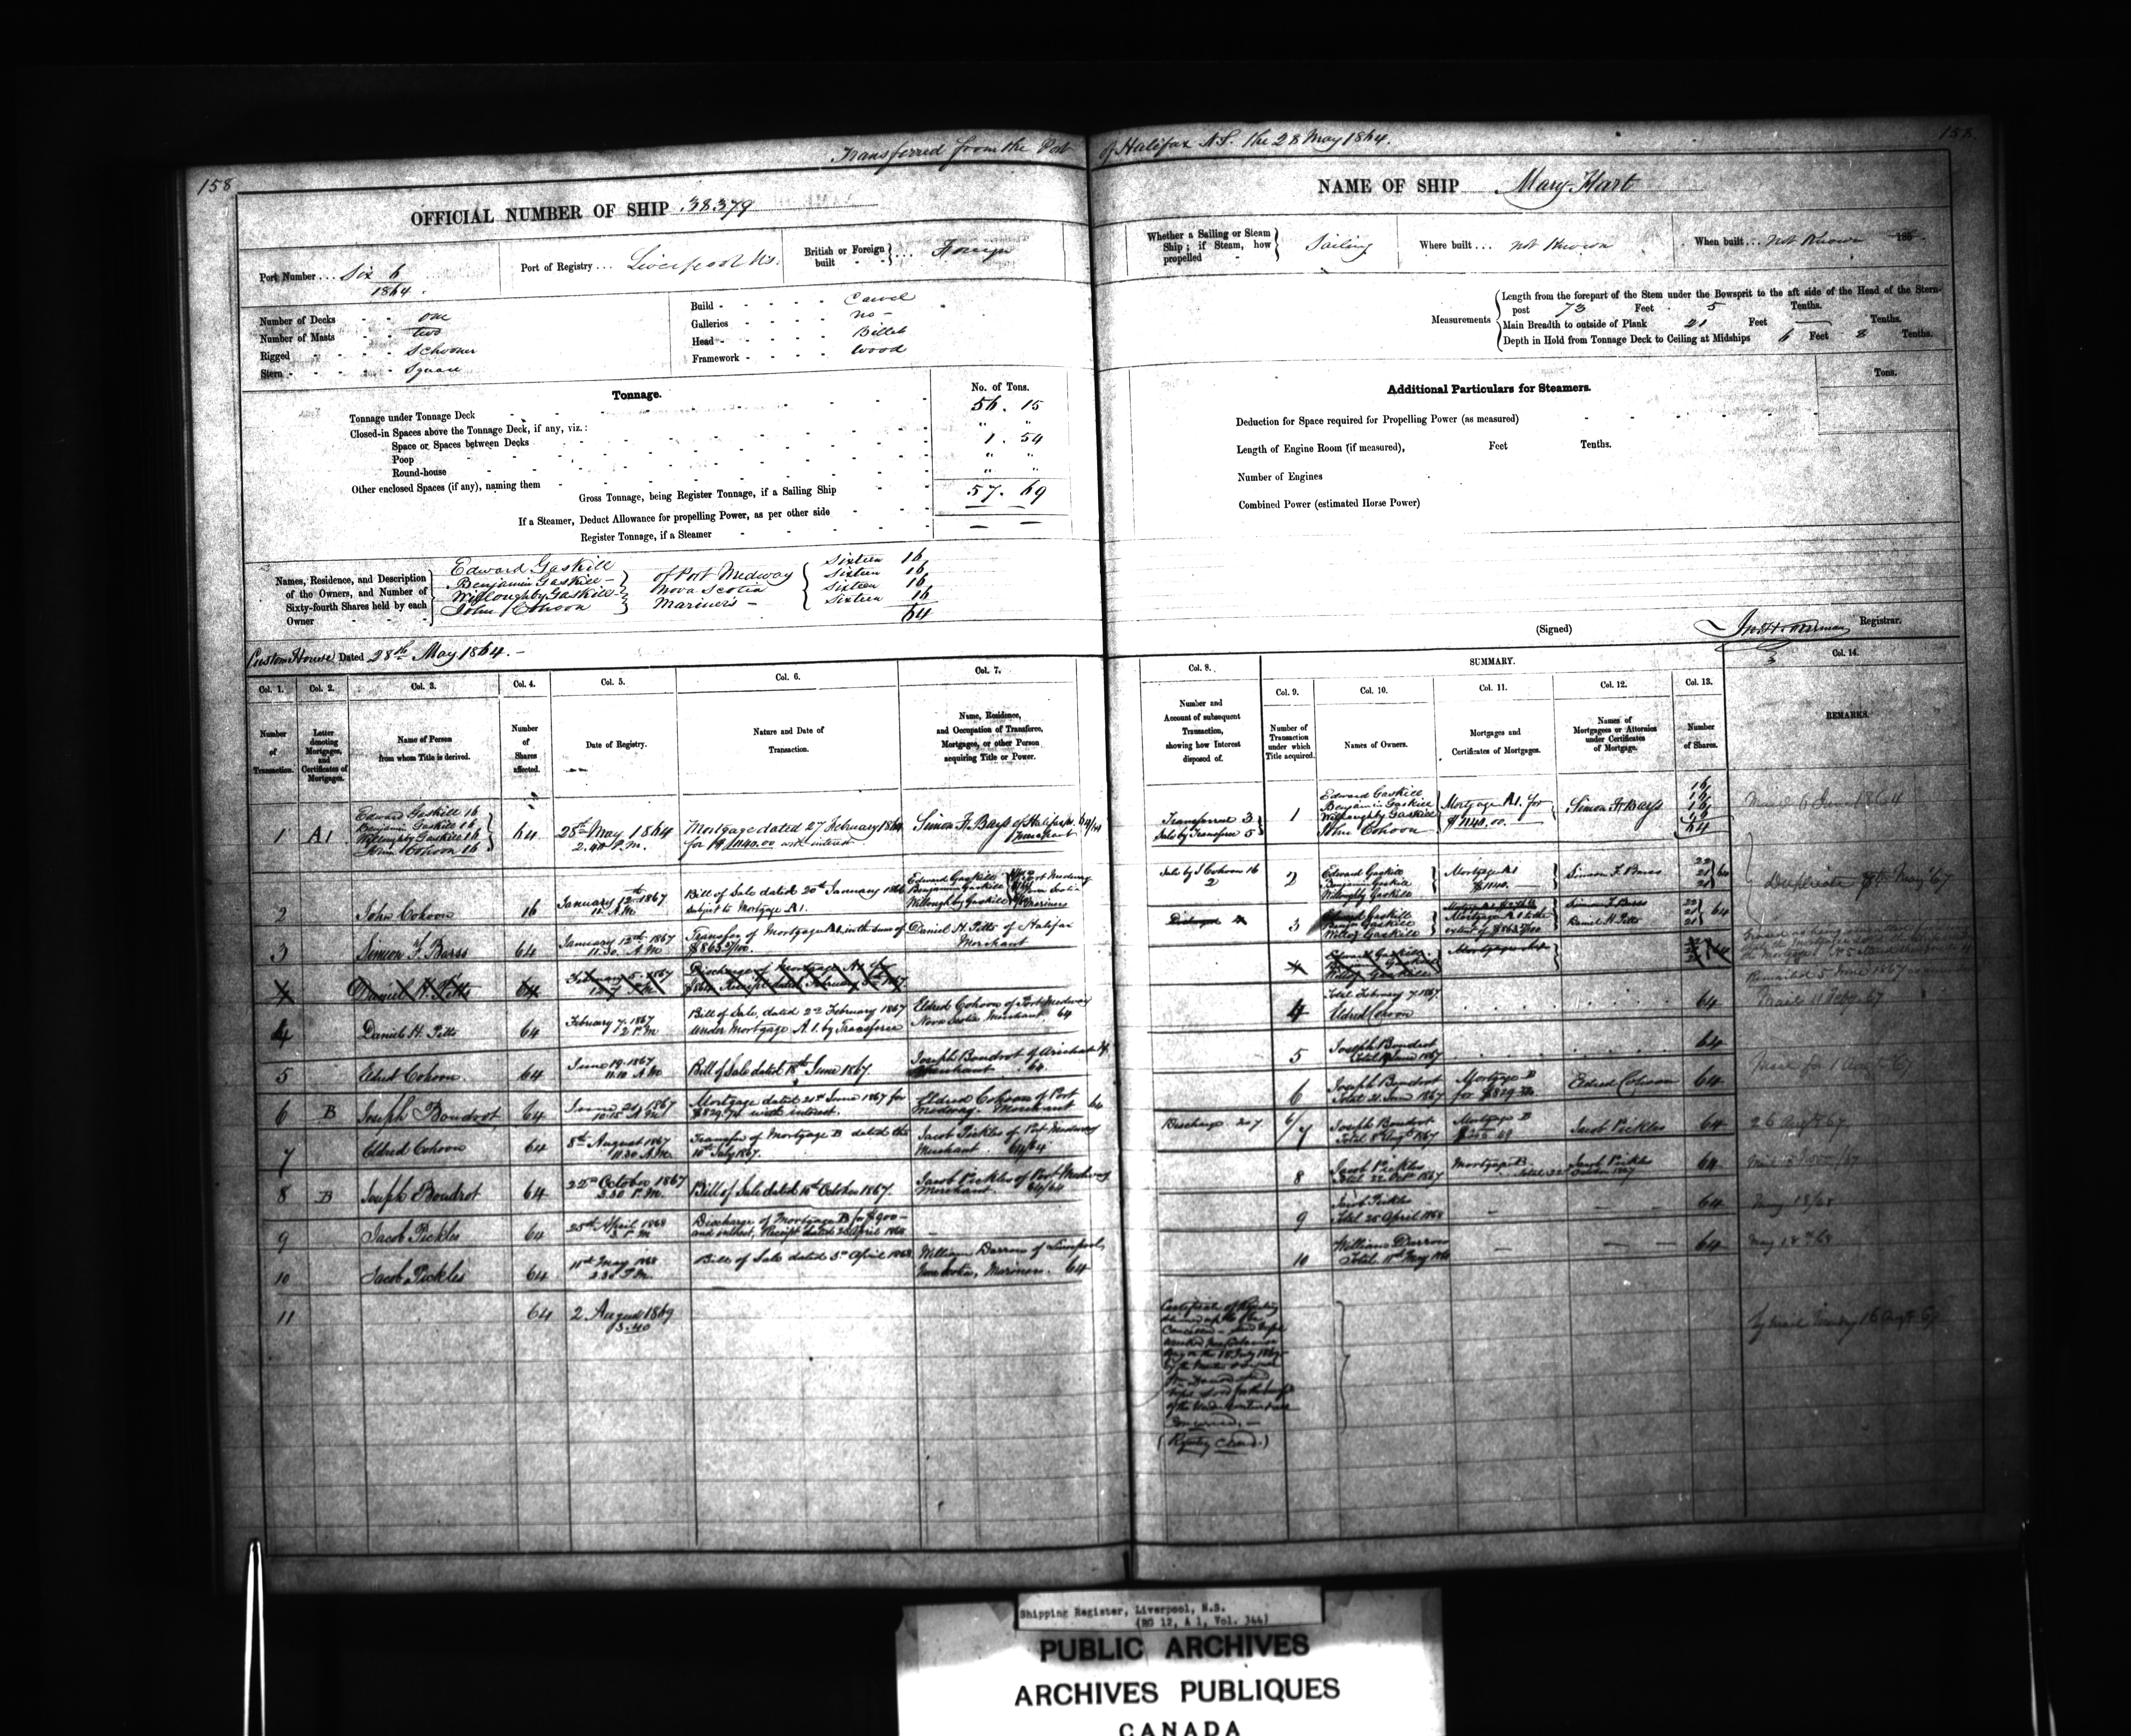 Transferred from the Port of Halifax N.S. the 28 May 1864.
158
158
OFFICIAL NUMBER OF SHIP 38379
NAME OF SHIP Mary Hart
Port Number... Six 6
1864.
Port of Registry... Liverpool N.S.
British or Foreign built - - ... Foreign
Whether a Sailing or Steam Ship; if Steam, how propelled - Sailing
Where built... not Known
When built... Not Known 185
Number of Decks - - one
Number of Masts - - two
Rigged - - - - Schooner
Stern - - - - Square
Build - - - - - Carvel
Galleries - - - - no -
Head - - - - - Billet
Framework - - - - Wood
Measurements
Length from the forepart of the Stem under the Bowsprit to the aft side of the Head of the Stern-
post 73 Feet 5 Tenths.
Main Breadth to outside of Plank 21 Feet — Tenths.
Depth in Hold from Tonnage Deck to Ceiling at Midships 6 Feet 8 Tenths.
Tonnage.
No. of Tons.
Tonnage under Tonnage Deck 56.15
Closed-in Spaces above the Tonnage Deck, if any, viz.:
Space or Spaces between Decks " "
Poop 1.54
Round-house " "
Other enclosed Spaces (if any), naming them " "
Gross Tonnage, being Register Tonnage, if a Sailing Ship 57.69
If a Steamer, Deduct Allowance for propelling Power, as per other side
Register Tonnage, if a Steamer — —
Additional Particulars for Steamers.
Tons.
Deduction for Space required for Propelling Power (as measured)
Length of Engine Room (if measured), Feet Tenths.
Number of Engines
Combined Power (estimated Horse Power)
Names, Residence, and Description
of the Owners, and Number of
Sixty-fourth Shares held by each
Owner
Edward Gaskill
Benjamin Gaskill
Willoughby Gaskill
John Cohoon
of Port Medway
Nova Scotia
Mariners -
Sixteen 16
Sixteen 16
Sixteen 16
Sixteen 16
64
Custom House Dated 28th May 1864. -
(Signed) Registrar.
SUMMARY.
Col. 1. Col. 2. Col. 3. Col. 4. Col. 5. Col. 6. Col. 7. Col. 8. Col. 9. Col. 10. Col. 11. Col. 12. Col. 13. Col. 14.
Number of Transaction.
Letter denoting Mortgages, and Certificates of Mortgages.
Name of Person from whom Title is derived.
Number of Shares affected.
Date of Registry.
Nature and Date of Transaction.
Name, Residence, and Occupation of Transferee, Mortgagee, or other Person acquiring Title or Power.
Number and Account of subsequent Transaction, showing how Interest disposed of.
Number of Transaction under which Title acquired.
Names of Owners.
Mortgages and Certificates of Mortgages.
Names of Mortgagees or Attornies under Certificates of Mortgage.
Number of Shares.
REMARKS.
1 A1
Edward Gaskill 16
Benjamin Gaskill 16
Willoughby Gaskill 16
John Cohoon 16
64
28th May 1864
2.40 P.M.
Mortgage dated 27 February 1864
for $1140.00 with interest
of Halifax
Merchant
Transferred 3
Sale by Transferee 5
1
Edward Gaskill
Benjamin Gaskill
Willoughby Gaskill
John Cohoon
Mortgage A1. for
$1140.00
16
16
16
16
64
6 June 1864
2 John Cohoon 16
January 12th 1867
11 A.M.
Bill of Sale dated 20th January
subject to Mortgage A1.
Edward Gaskill
Benjamin Gaskill
Willoughby Gaskill
of Port Medway
Nova Scotia
Mariners
Sale by J Cohoon 16
2
2
Edward Gaskill
Benjamin Gaskill
Willoughby Gaskill
Mortgage A1
$1140.
22
21
21
64
Duplicate 8th May '67
3 Simeon F. Barss 64
January 12th 1867
11.30 A.M.
Transfer of Mortgage A1. in the sum of
Daniel H. Pitts of Halifax
Merchant
3
Daniel H Pitts
22
21
21
64
4 Daniel H. Pitts 64
4 Daniel H. Pitts 64
February 7. 1867
Bill of Sale, dated 2nd February 1867
under Mortgage A.1. by Transferee
Eldred Cohoon of Port Medway
Nova Scotia Merchant. 64
4
Total February 7. 1867
Eldred Cohoon
64
5 Eldred Cohoon. 64
June 19. 1867
11.10 A.M
Bill of Sale dated 18th June 1867.
Joseph Boudrot of Arichat
Merchant 64
5 Joseph Boudrot
64
6 B Joseph Boudrot 64
Mortgage dated 21st June 1867 for
with interest.
Eldred Cohoon of Port
Medway. Merchant 64
6
Joseph Boudrot
Total 21 June 1867
Mortgage B
Eldred Cohoon 64
7 Eldred Cohoon 64
8th August 1867
11.30 A.M.
Transfer of Mortgage B dated the
10th July 1867.
Jacob Pickles of Port Medway
Merchant 64/64
Joseph Boudrot
Total 8th Augt 1867
Mortgage B
Jacob Pickles 64
26 Augt 67
8 B Joseph Boudrot 64
22nd October 1867
3.30 P.M.
Bill of Sale dated 10th October 1867.
Jacob Pickles of Port Medway
Merchant. 64/64
8
Jacob Pickles
Total 22 Oct 1867
Mortgage B.
Jacob Pickles
64
9 Jacob Pickles 64
25th April 1868
3 P.M
Discharge of Mortgage B for $900 -
and interest, Receipt dated April 1868
9
Jacob Pickles
Total 25 April 1868
64
May 13/68
10 Jacob Pickles 64
11th May 1868
2.30 P.M.
Bill of Sale dated 5th April 1868.
William Darrow of Liverpool,
Nova Scotia, Mariner. 64
10
William Darrow
Total 11th May 1868
64
May 18th 68
11 64
2 August 1869
13.40
Certificate of Registry
(Registry Closed.)
Shipping Register, Liverpool, N.S.
(RG 12, A 1, Vol. 344)
PUBLIC ARCHIVES
ARCHIVES PUBLIQUES
CANADA